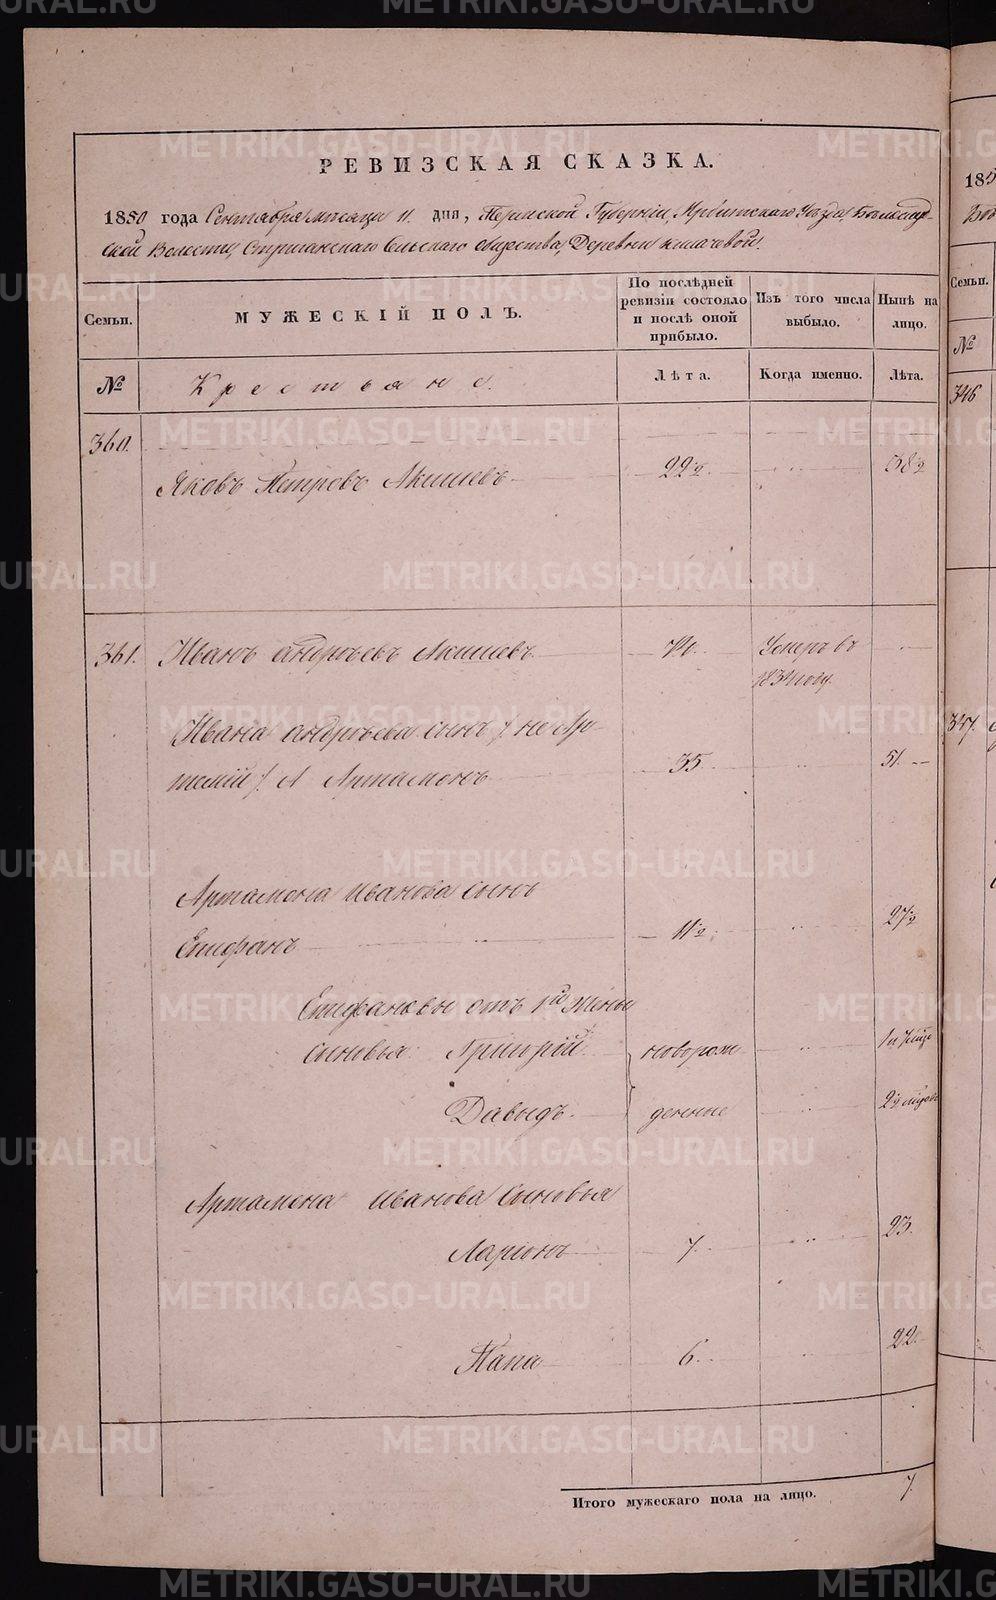 РЕВИЗСКАЯ СКАЗКА.
1850 года Сентября месяца 11 дня, Пермской Губернии, Ирбитскаго Уезда,
ской Волости, Стриганскаго Сельскаго Общества, Деревни Кекачевой.
Семьи.
МУЖЕСКІЙ ПОЛЪ.
По послѣдней ревизіи состояло и послѣ оной прибыло.
Изъ того числа выбыло.
Нынѣ на лицо.
№
Крестьяне.
Лѣта.
Когда именно.
Лѣта.
360.
Яковъ Петровъ Акишевъ 22½ 38½
361. Иванъ Андреевъ Акишевъ Умеръ въ
1834 году.
Ивана Андреева сынъ /: не Ар-
темій :/ А Артамонъ 35 51
Артамона Иванова сынъ
Епифанъ 11½ 27½
Епифановы отъ 1й жены
сыновья Григорій новорож-
Давыдъ денные
Артамона Иванова сыновья
Ларіонъ 7 23
Папа 6 22
Итого мужескаго пола на лицо. 7.
185
Семьи.
№
346
347.
METRIKI.GASO-URAL.RU